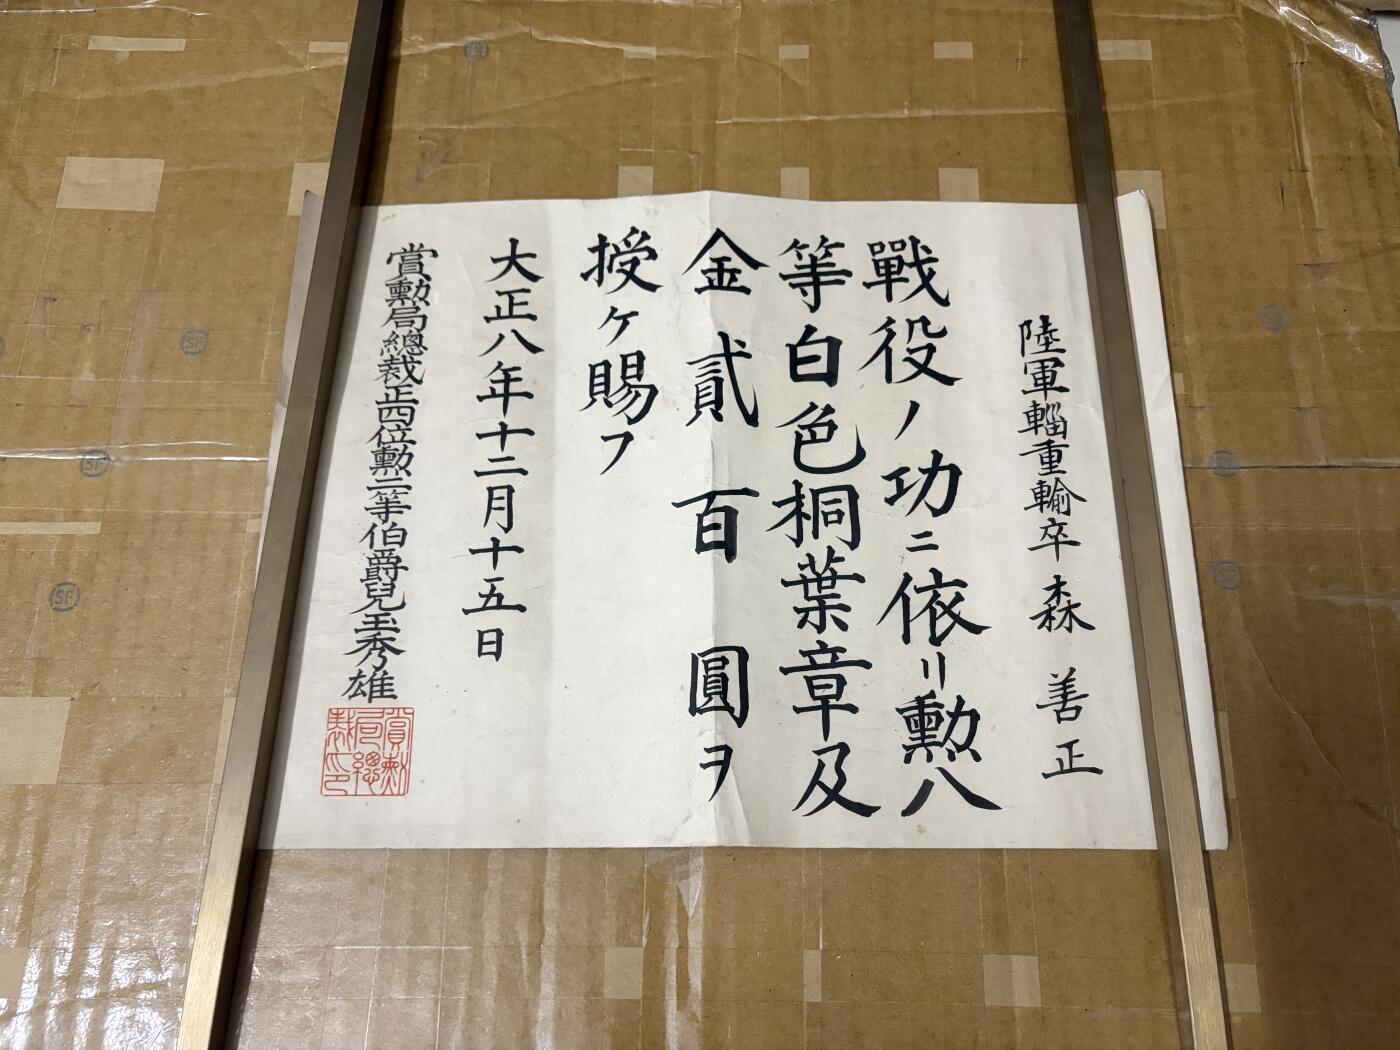 陸軍輜重輸卒 森 善正
戰役ノ功ニ依リ勲八
等白色桐葉章及
金貳百圓ヲ
授ケ賜フ
大正八年十二月十五日
賞勲局總裁正四位勲二等伯爵兒玉秀雄
賞勲
局總
裁印
SF
SF
SF
SF
SF
SF